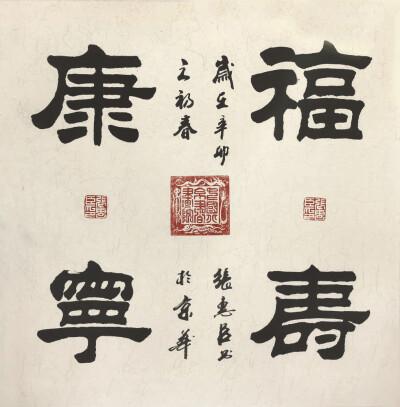 福壽
康寧
歲在辛卯
之初春
張惠臣書
於京華